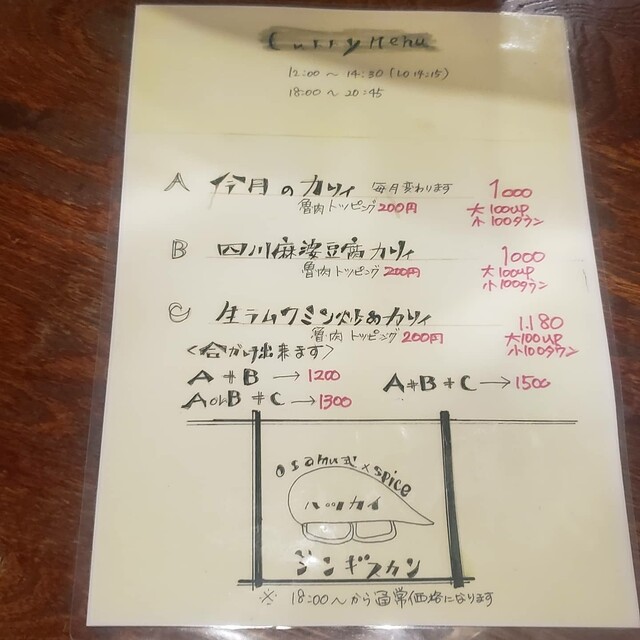 Curry Menu
12:00 〜 14:30 (LO 14:15)
18:00 〜 20:45
A 今月のカリィ 毎月変わります 1000
魯肉トッピング 200円 大100up
小100ダウン
B 四川麻婆豆腐カリィ 1000
魯肉トッピング 200円 大100up
小100ダウン
C 生ラムクミン炒めカリィ 1.180
魯肉トッピング 200円 大100up
小100ダウン
<合がけ出来ます>
A＋B → 1200
A＋B＋C → 1500
AorB＋C → 1300
osamu式×spice
ハッカイ
ジンギスカン
※ 18:00〜から通常価格になります